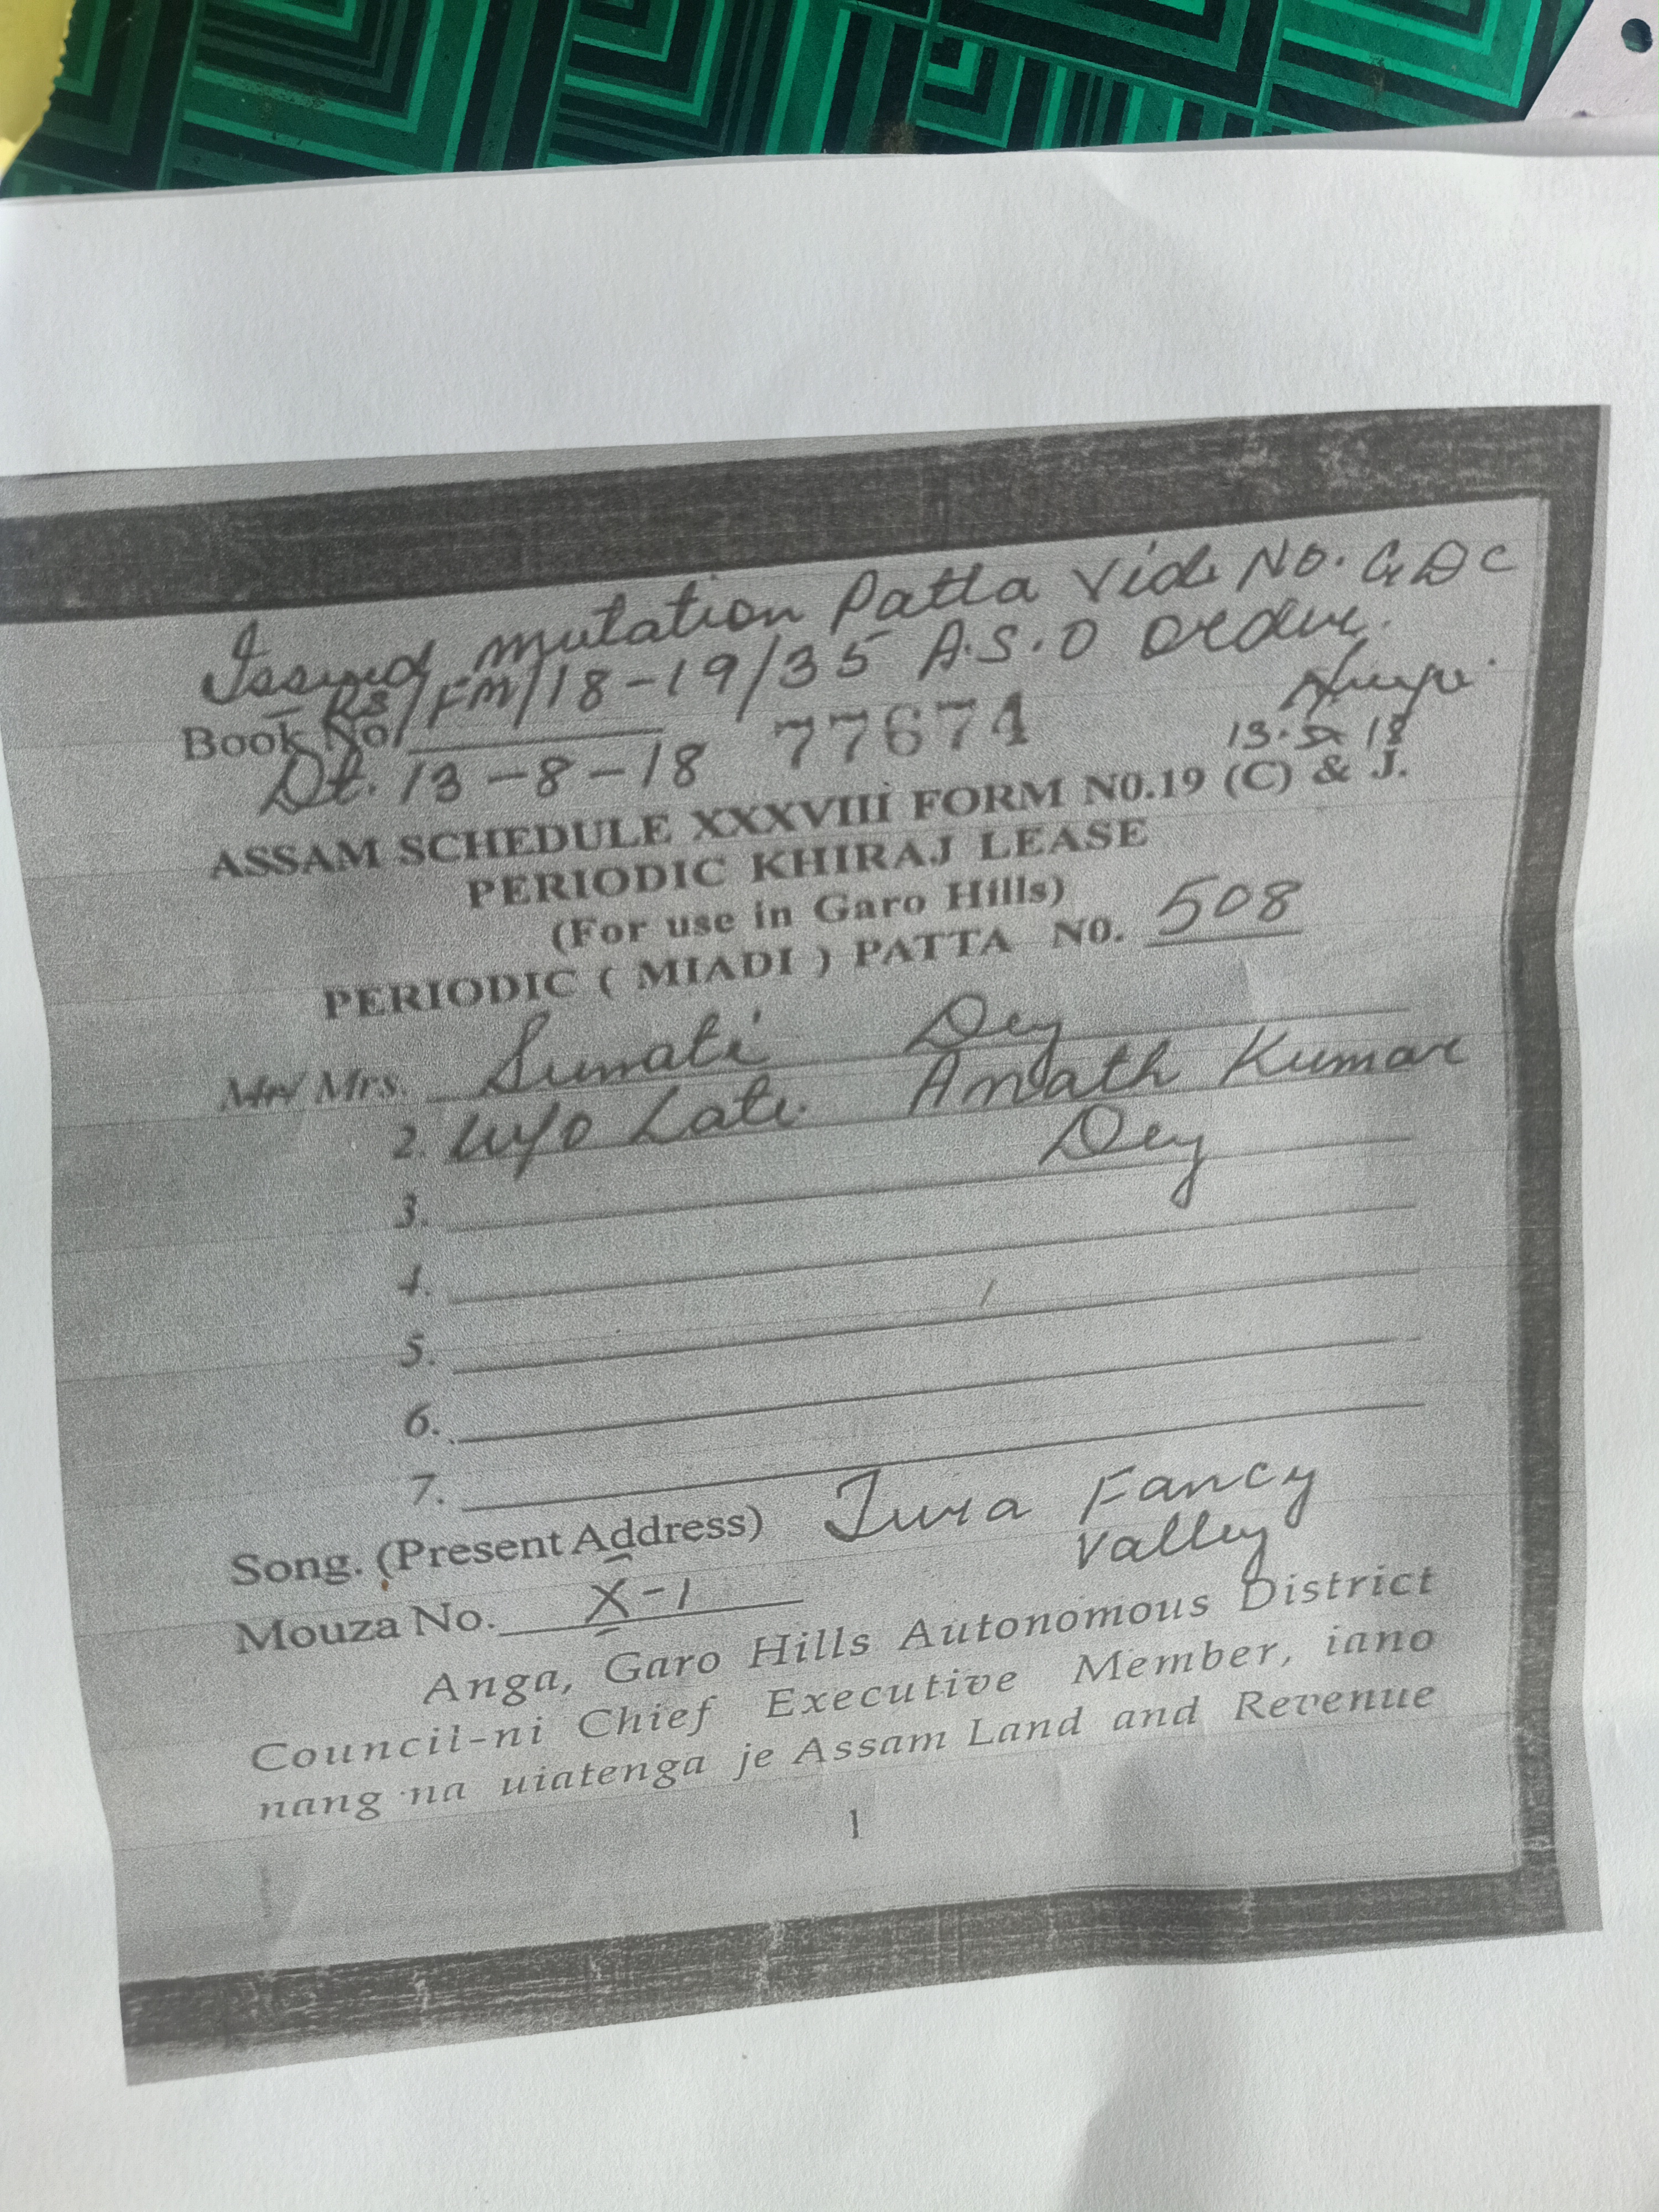 Issued mutation Patta Vide No. GDC
Rs/FM/18-19/35 A.S.O Order.
Book No. 77674
Dt. 13-8-18
13.8.18
ASSAM SCHEDULE XXXVIII FORM N0.19 (C) & J.
PERIODIC KHIRAJ LEASE
(For use in Garo Hills)
PERIODIC ( MIADI ) PATTA N0. 508
Mr/ Mrs. Sumati Dey
2. W/o Late. Anath Kumar
Dey
3.
4.
5.
6.
7.
Song. (Present Address) Tura Fancy
Valley
Mouza No. X-1
Anga, Garo Hills Autonomous District
Council-ni Chief Executive Member, iano
nang na uiatenga je Assam Land and Revenue
1